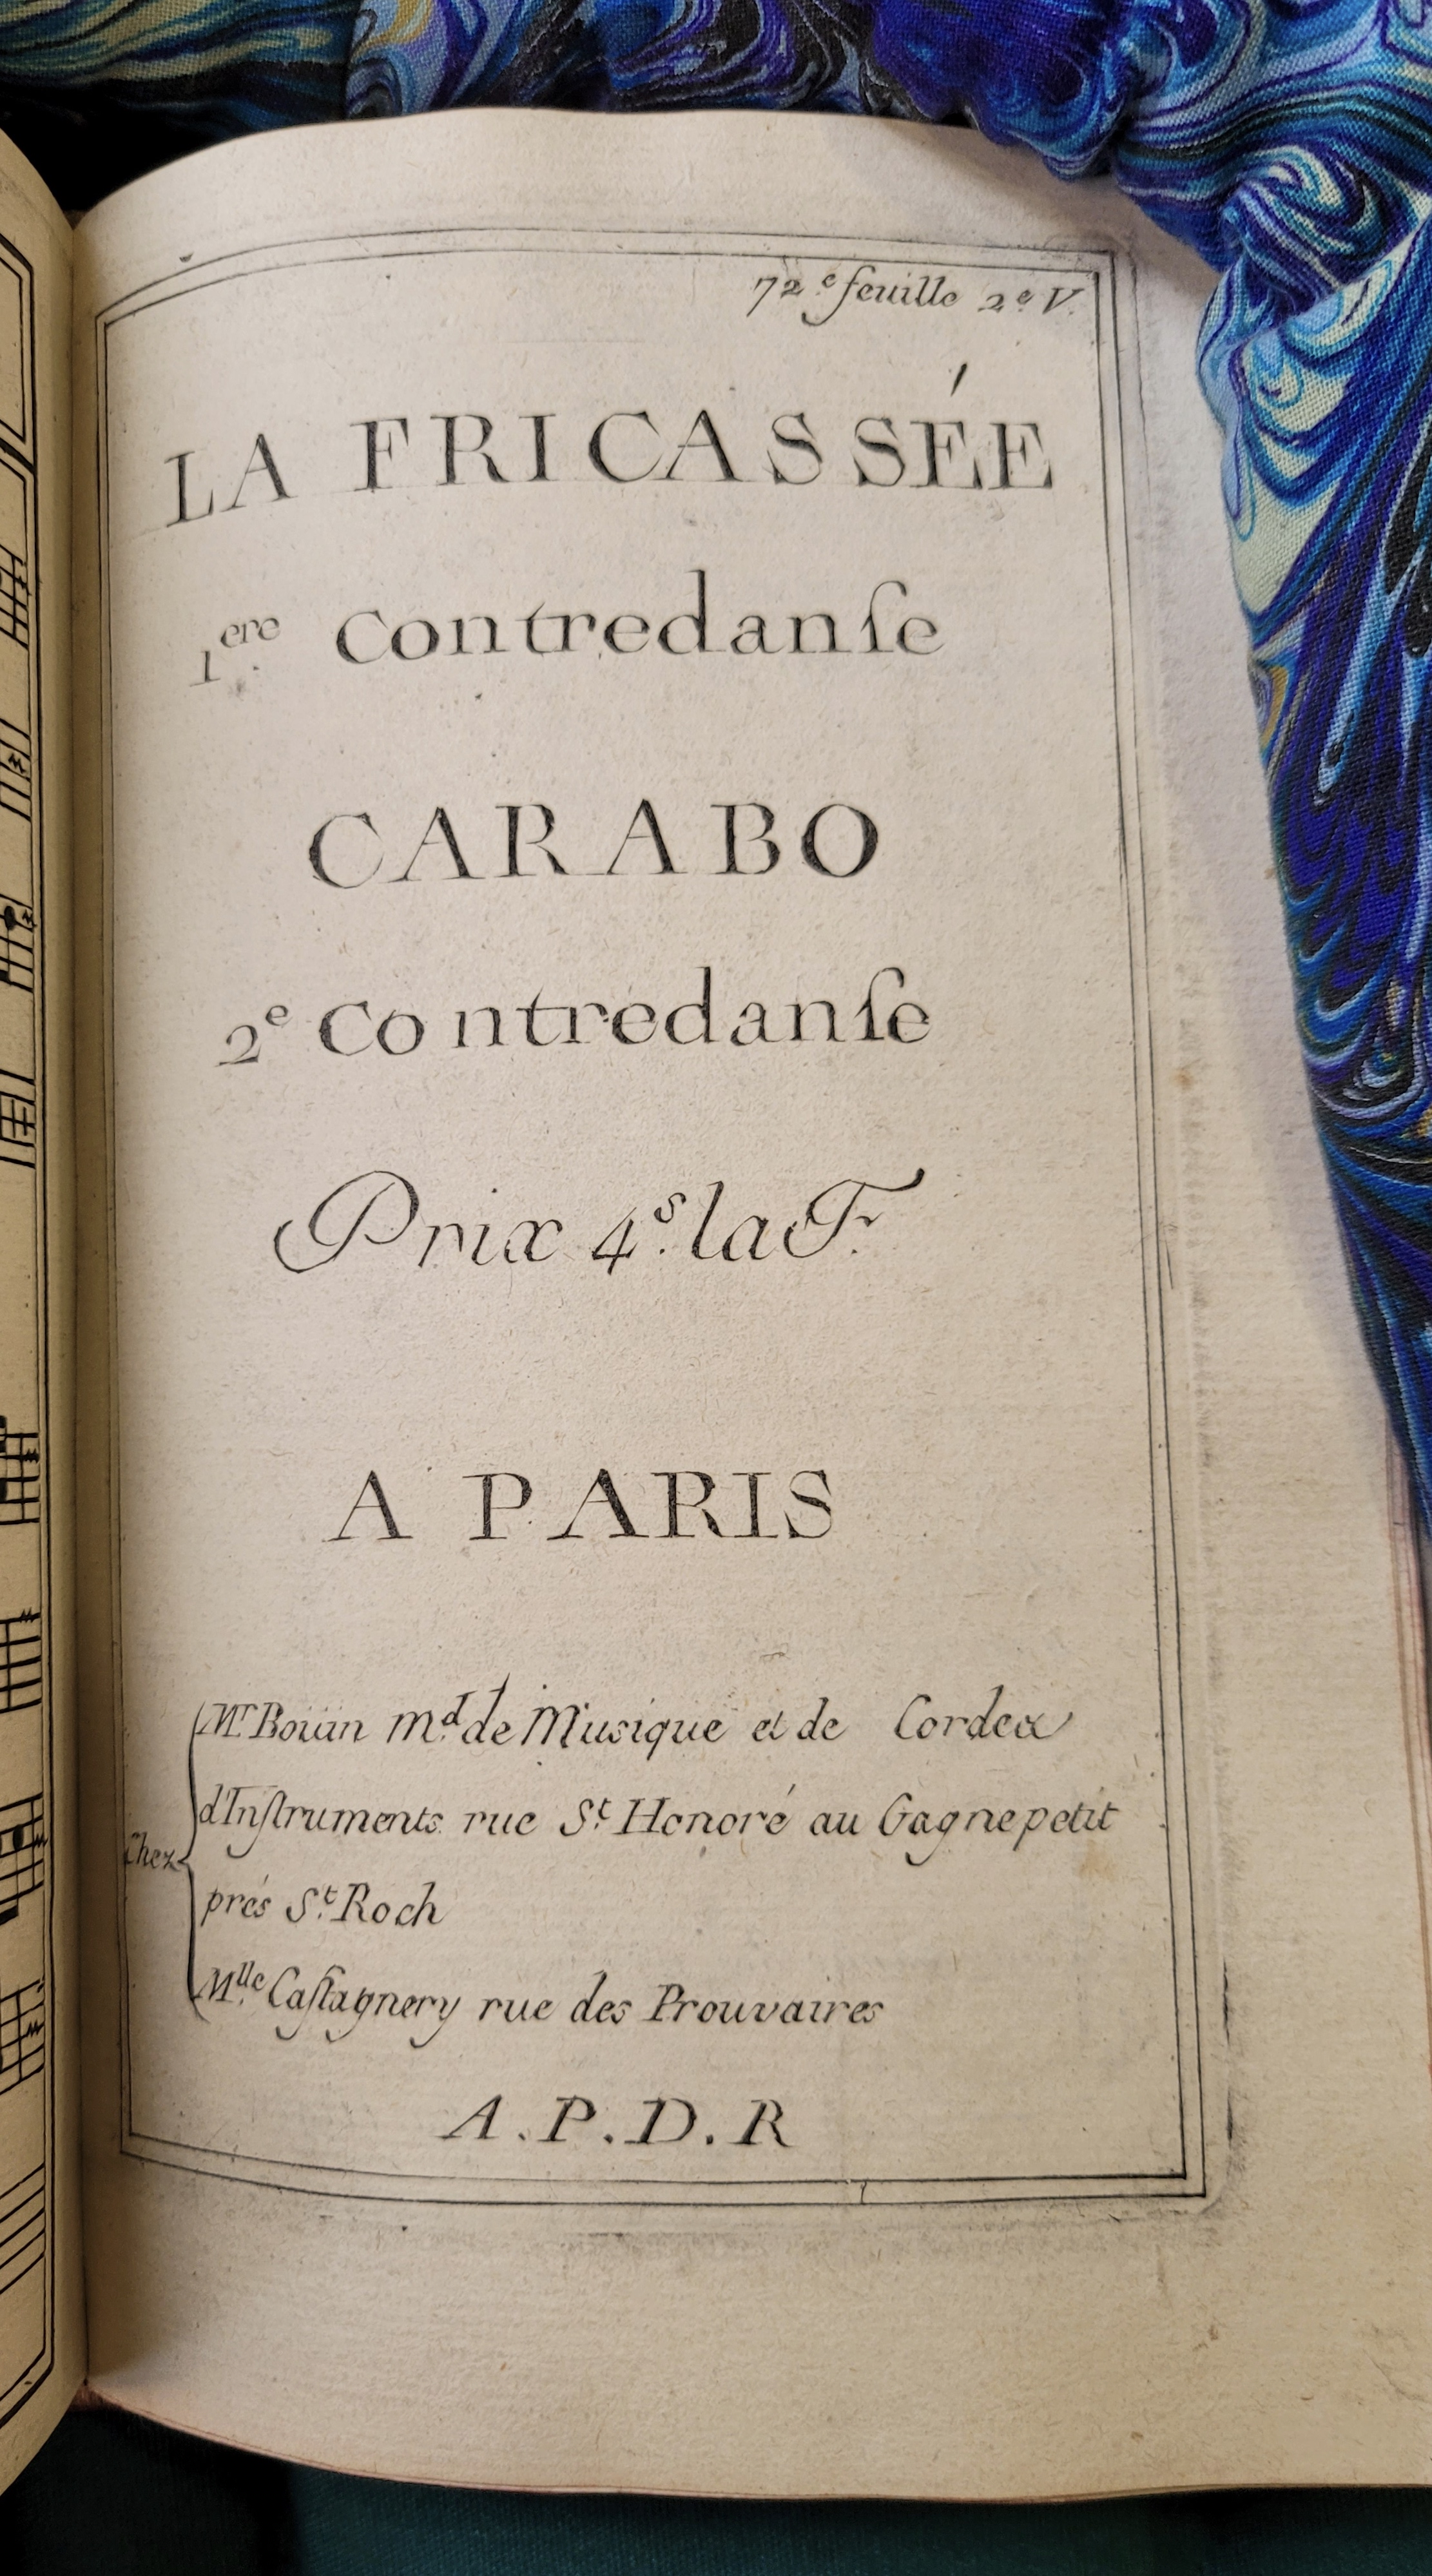 72.e feuille 2.e V.
LA FRICASSÉE
1.ere Contredanſe
CARABO
2.e Contredanſe
Prix 4.s la F.
A PARIS
Chez
M.r Boüin m.d de Musique et de Cordes
d'Inſtruments rue S.t Honoré au Gagnepetit
prés S.t Roch
M.lle Caſtagnery rue des Prouvaires
A.P.D.R